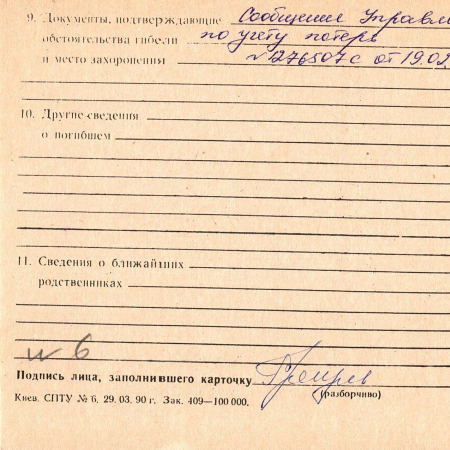 9. Документы, подтверждающие Сообщение Управл
обстоятельства гибели по учету потерь
и место захоронения № 276507с от 19.02
10. Другие сведения
о погибшем
11. Сведения о ближайших
родственниках
№ 6
Подпись лица, заполнившего карточку
Киев. СПТУ № 6. 29. 03. 90 г. Зак. 409—100 000. (разборчиво)